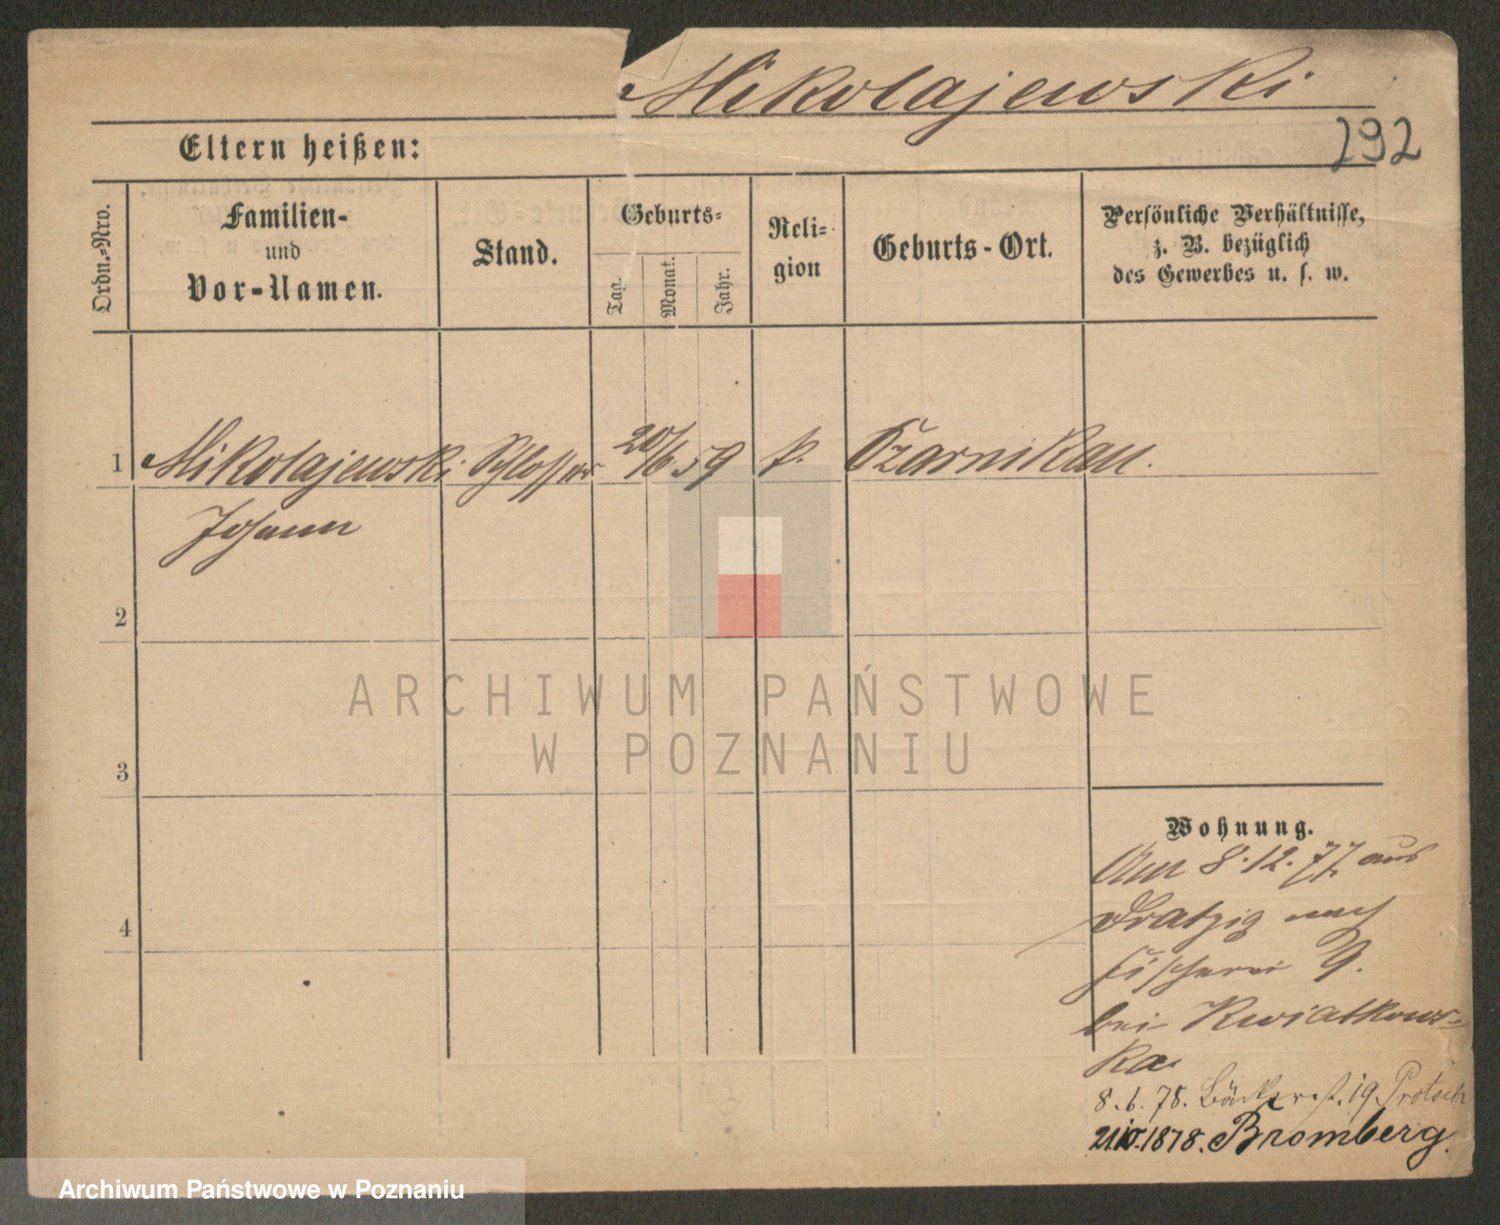 Mikolajewski
292
Eltern heißen:
Ordn.-Nro.
Familien-
und
Vor-Namen.
Stand.
Geburts-
Tag.
Monat.
Jahr.
Reli-
gion
Geburts-Ort.
Persönliche Verhältnisse,
z. B. bezüglich
des Gewerbes u. s. w.
1 Mikolajewski Schlosser 20/6. 59 k. Czarnikau.
Johann
2
ARCHIWUM PAŃSTWOWE
W POZNANIU
3
Wohnung.
Am 8.12.77. aus
Dratzig nach
Fischerei 9.
bei Kwiatkows-
ka
4
8.6.78. Bäckerst. 19. Protsch
1878. Bromberg.
Archiwum Państwowe w Poznaniu